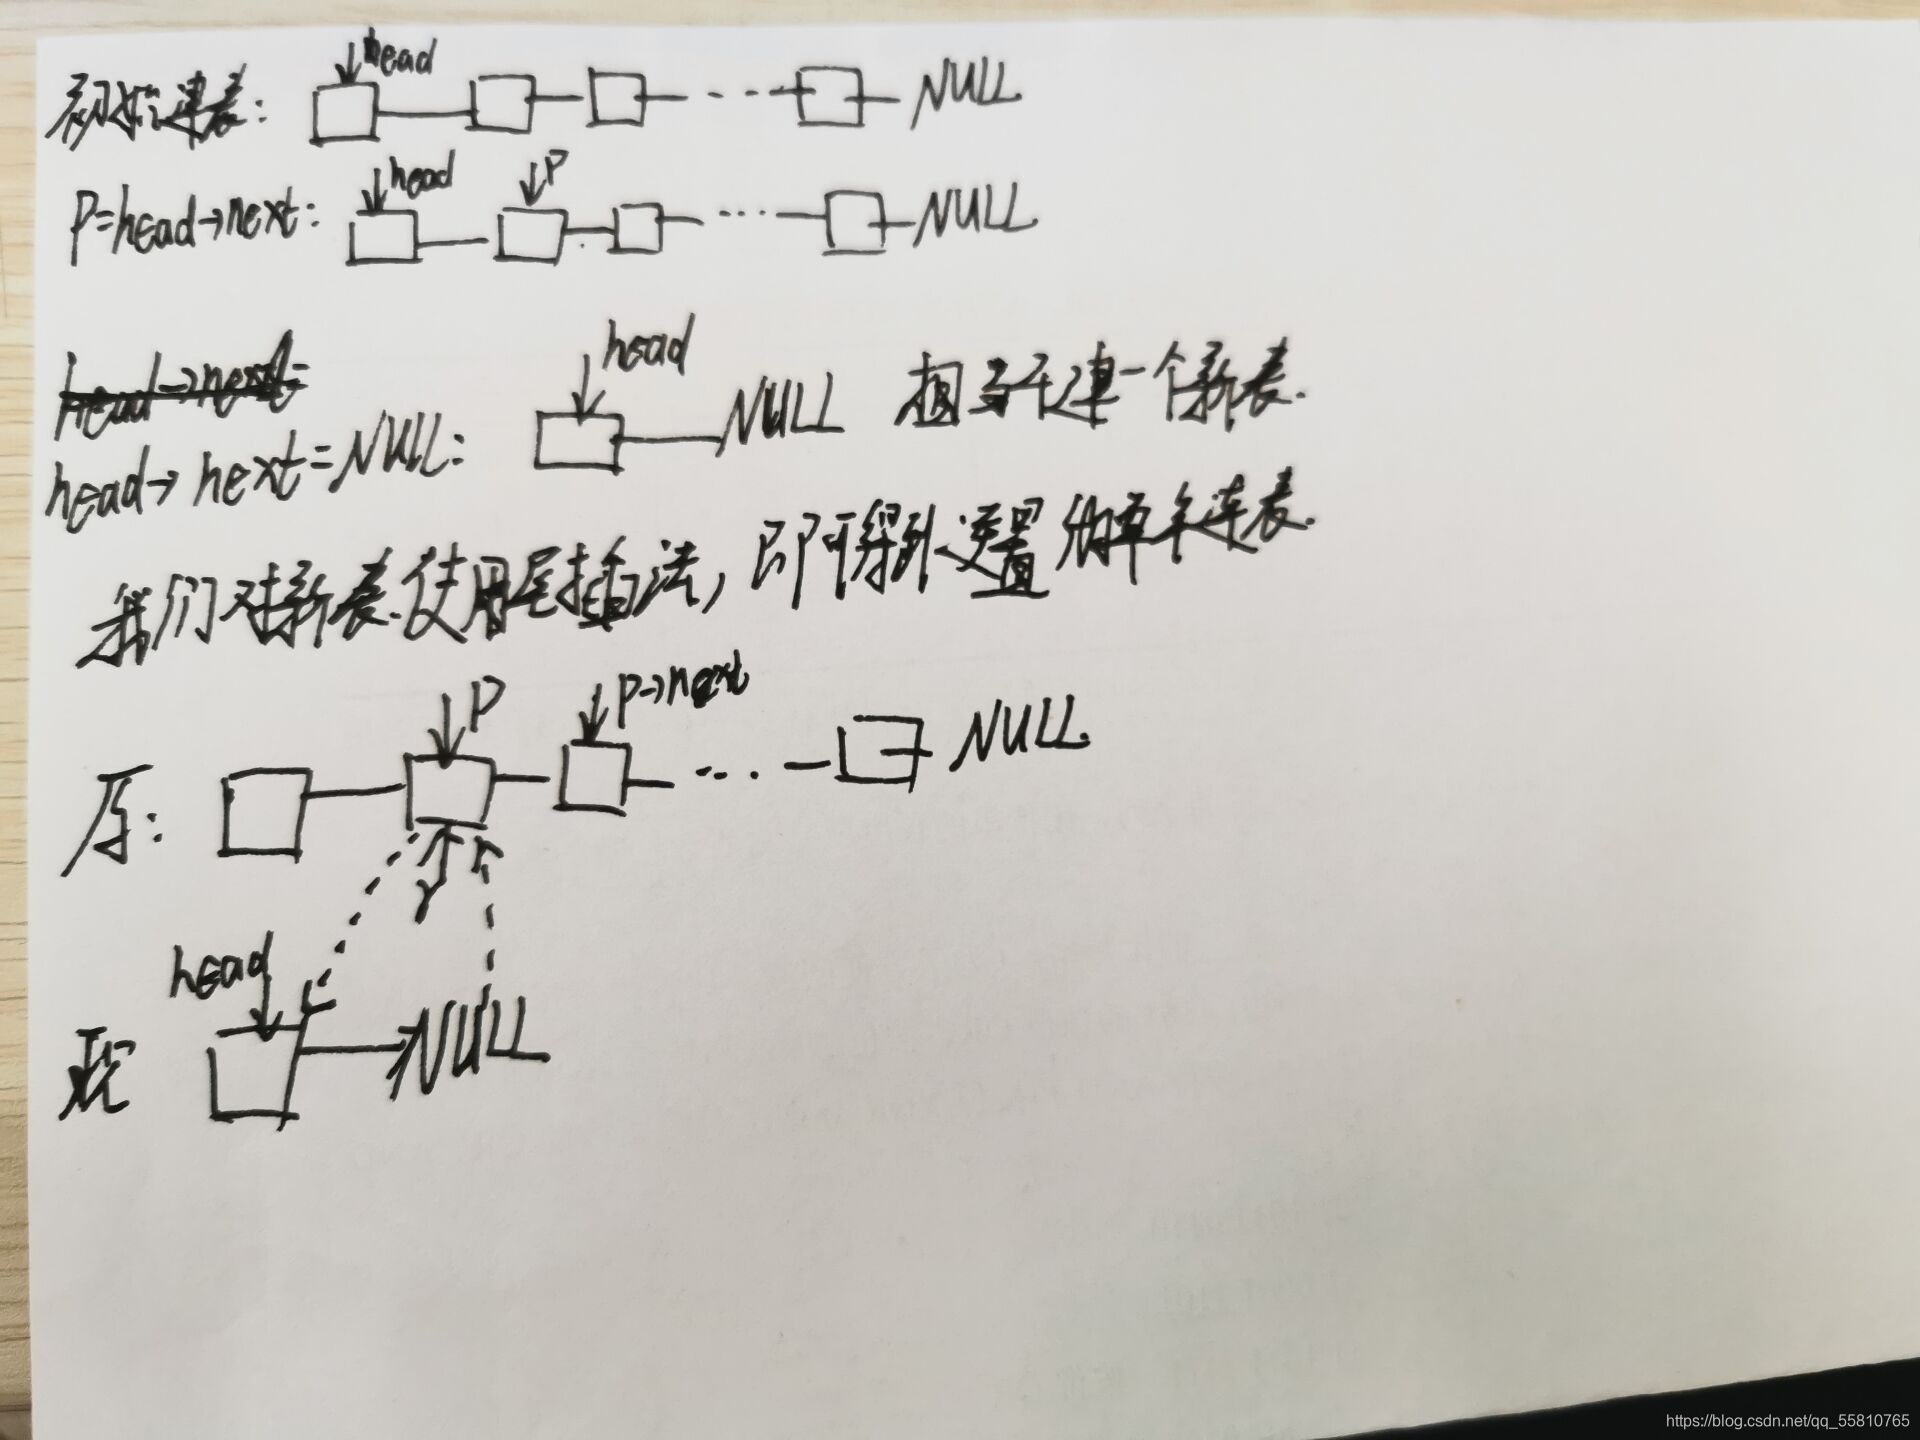 head
初始连表: NULL
head P
P=head→next: NULL
head→next=
head
head→next=NULL: NULL 相当于建一个新表.
我们对新表使用尾插法,即可得到逆置的单车连表.
P P→next
原: NULL
r
head
现 NULL
https://blog.csdn.net/qq_55810765